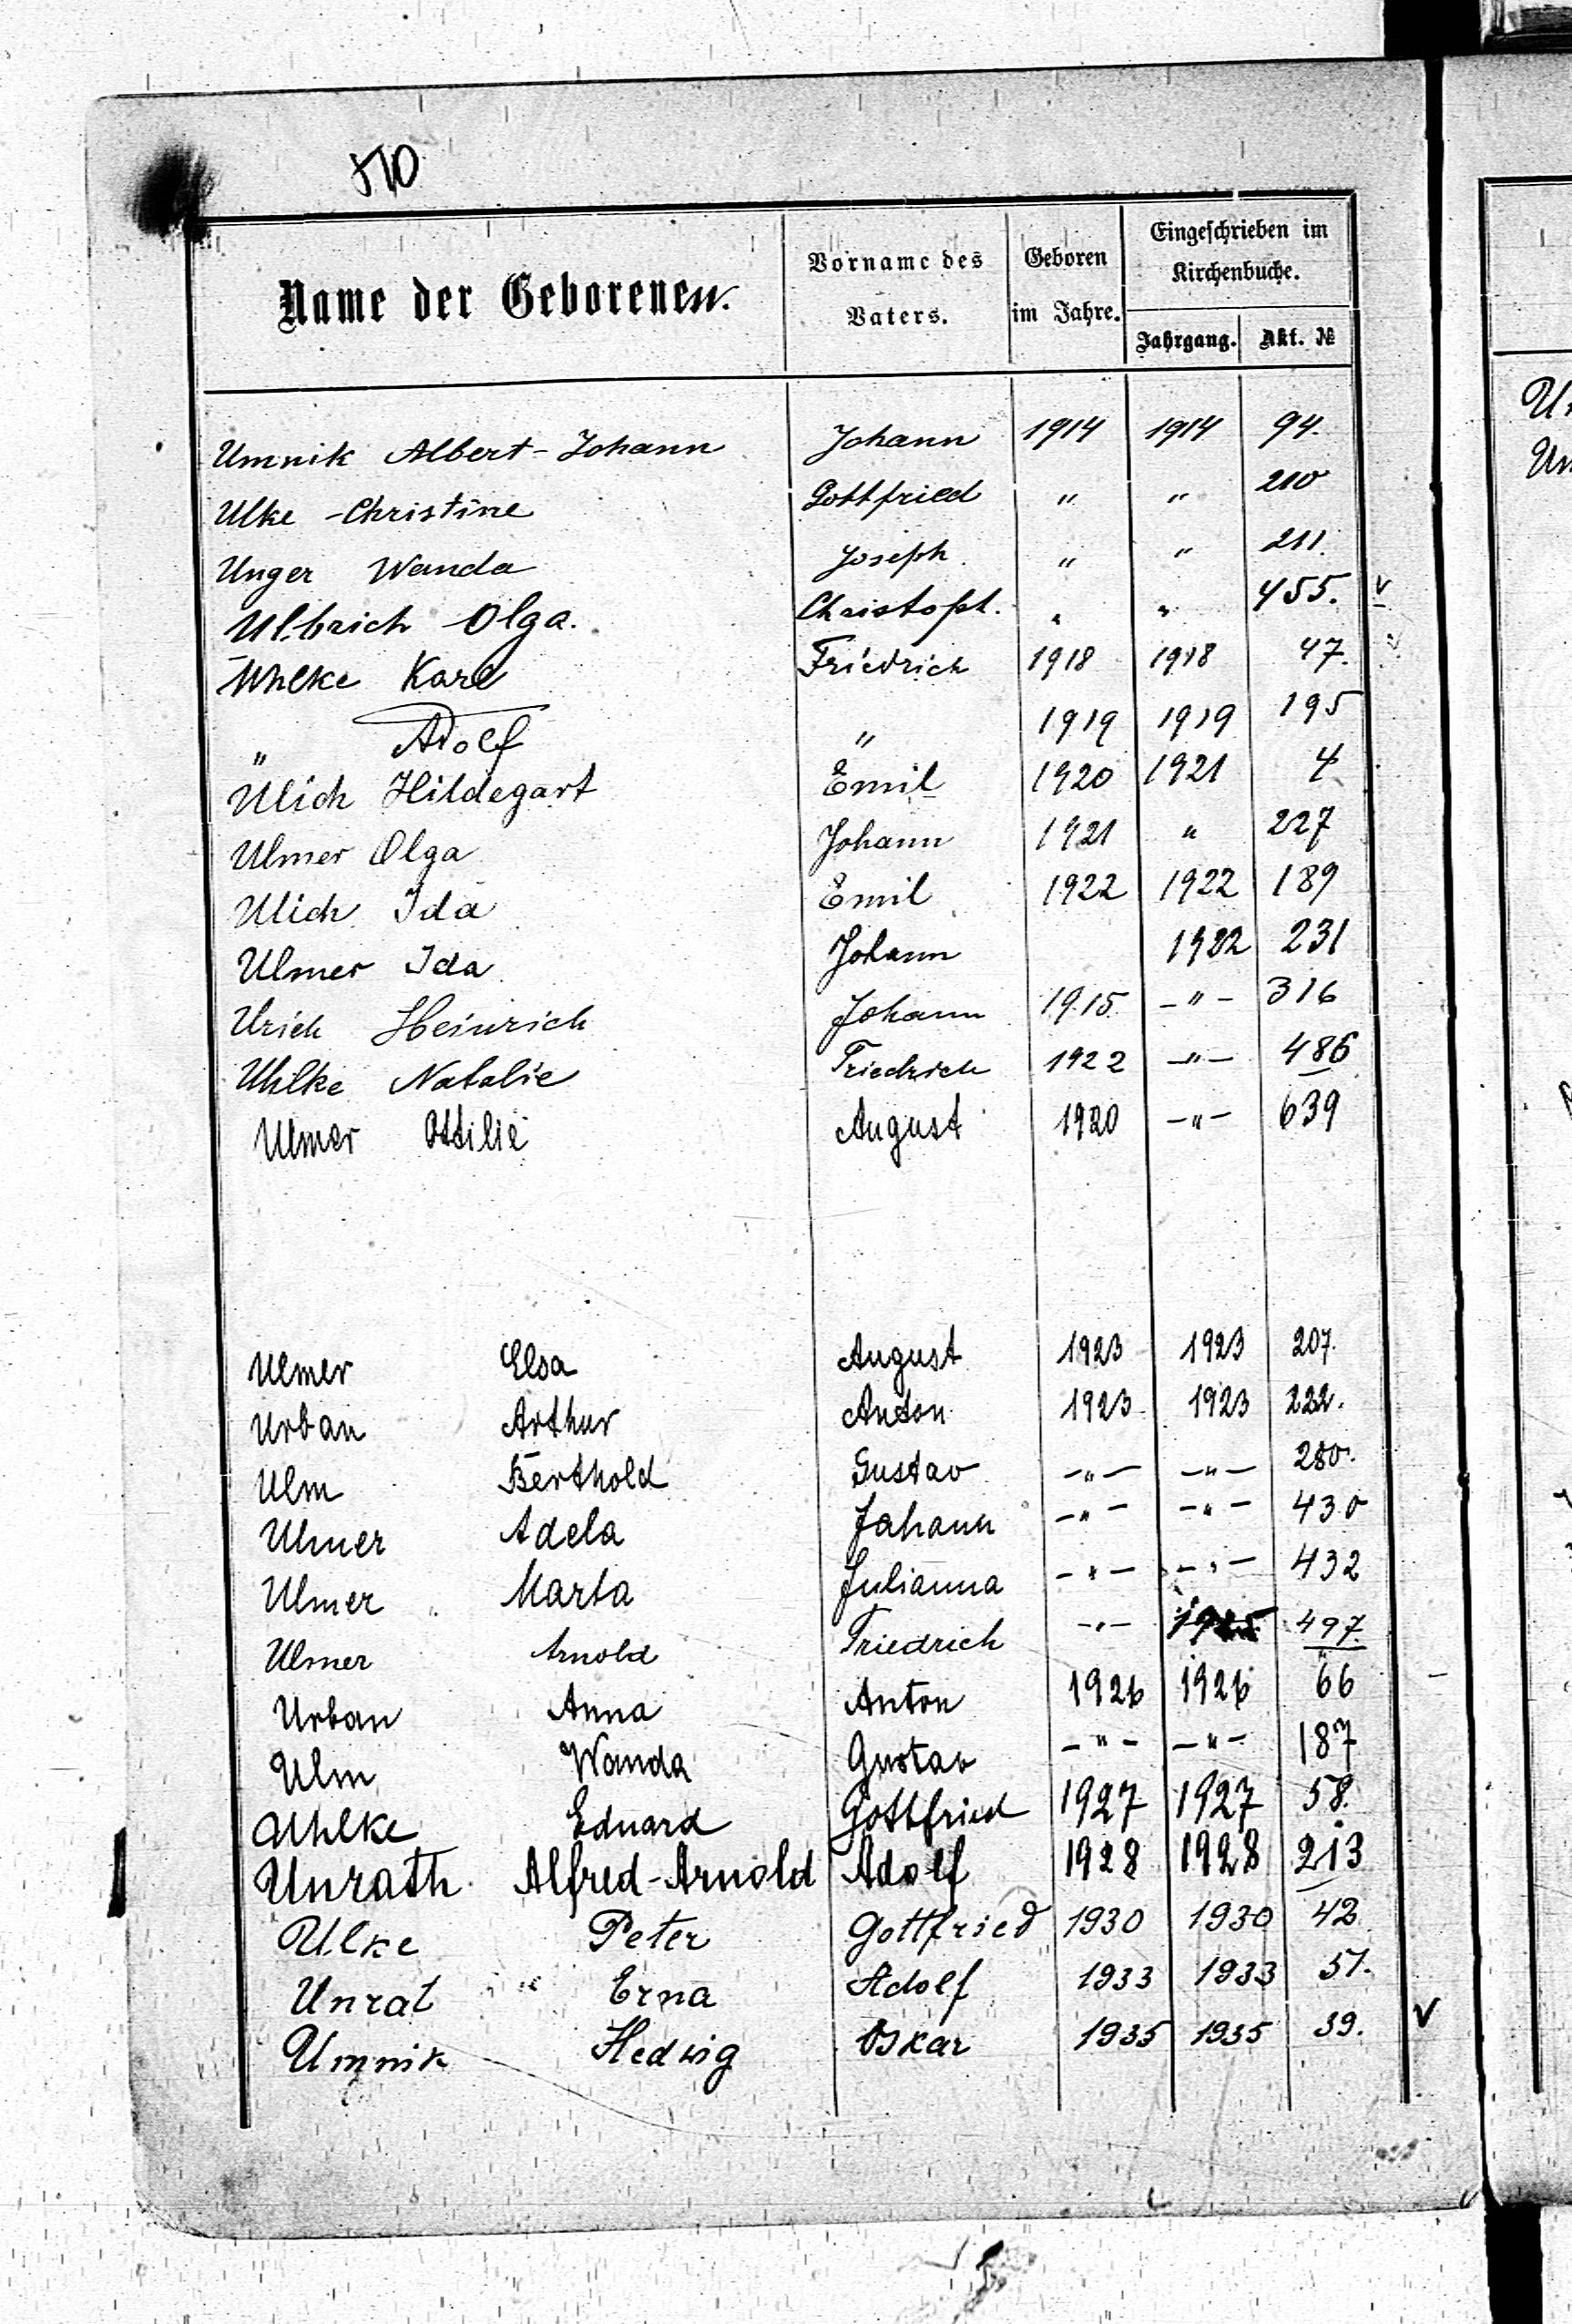 510
Name der Geborenen.
Vorname des Vaters.
Geboren im Jahre.
Eingeschrieben im Kirchenbuche.
Jahrgang. Akt. №
Umnik Albert-Johann Johann 1914 1914 94.
Ulke - Christine Gottfried " " 210
Unger Wanda Joseph. " " 211.
Ulbrich Olga. Christoph. " " 455. v
Uhlke Karl Friedrich 1918 1918 47.
" Adolf " 1919 1919 195
Ulich Hildegart Emil 1920 1921 4
Ulmer Olga Johann 1921 " 227
Ulich Ida Emil 1922 1922 189
Ulmer Ida Johann 1922 231
Urich Heinrich Johann 1915 -"- 316
Uhlke Natalie Friedrich 1922 -"- 486
Ulmer Ottilie August 1920 -"- 639
Ulmer Elsa August 1923 1923 207.
Urban Arthur Anton 1923 1923 222.
Ulm Berthold Gustav -"- -"- 280.
Ulmer Adela Johann -"- -"- 430
Ulmer Marta Julianna -"- -"- 432
Ulmer Arnold Friedrich -"- 497.
Urban Anna Anton 1926 1926 66
Ulm Wanda Gustav -"- -"- 187
Uhlke Eduard Gottfried 1927 1927 58.
Unrath Alfred-Arnold Adolf 1928 1928 213
Ulke Peter Gottfried 1930 1930 42
Unrat Erna Adolf 1933 1933 51.
Umnik Hedwig Oskar 1935 1935 39. v